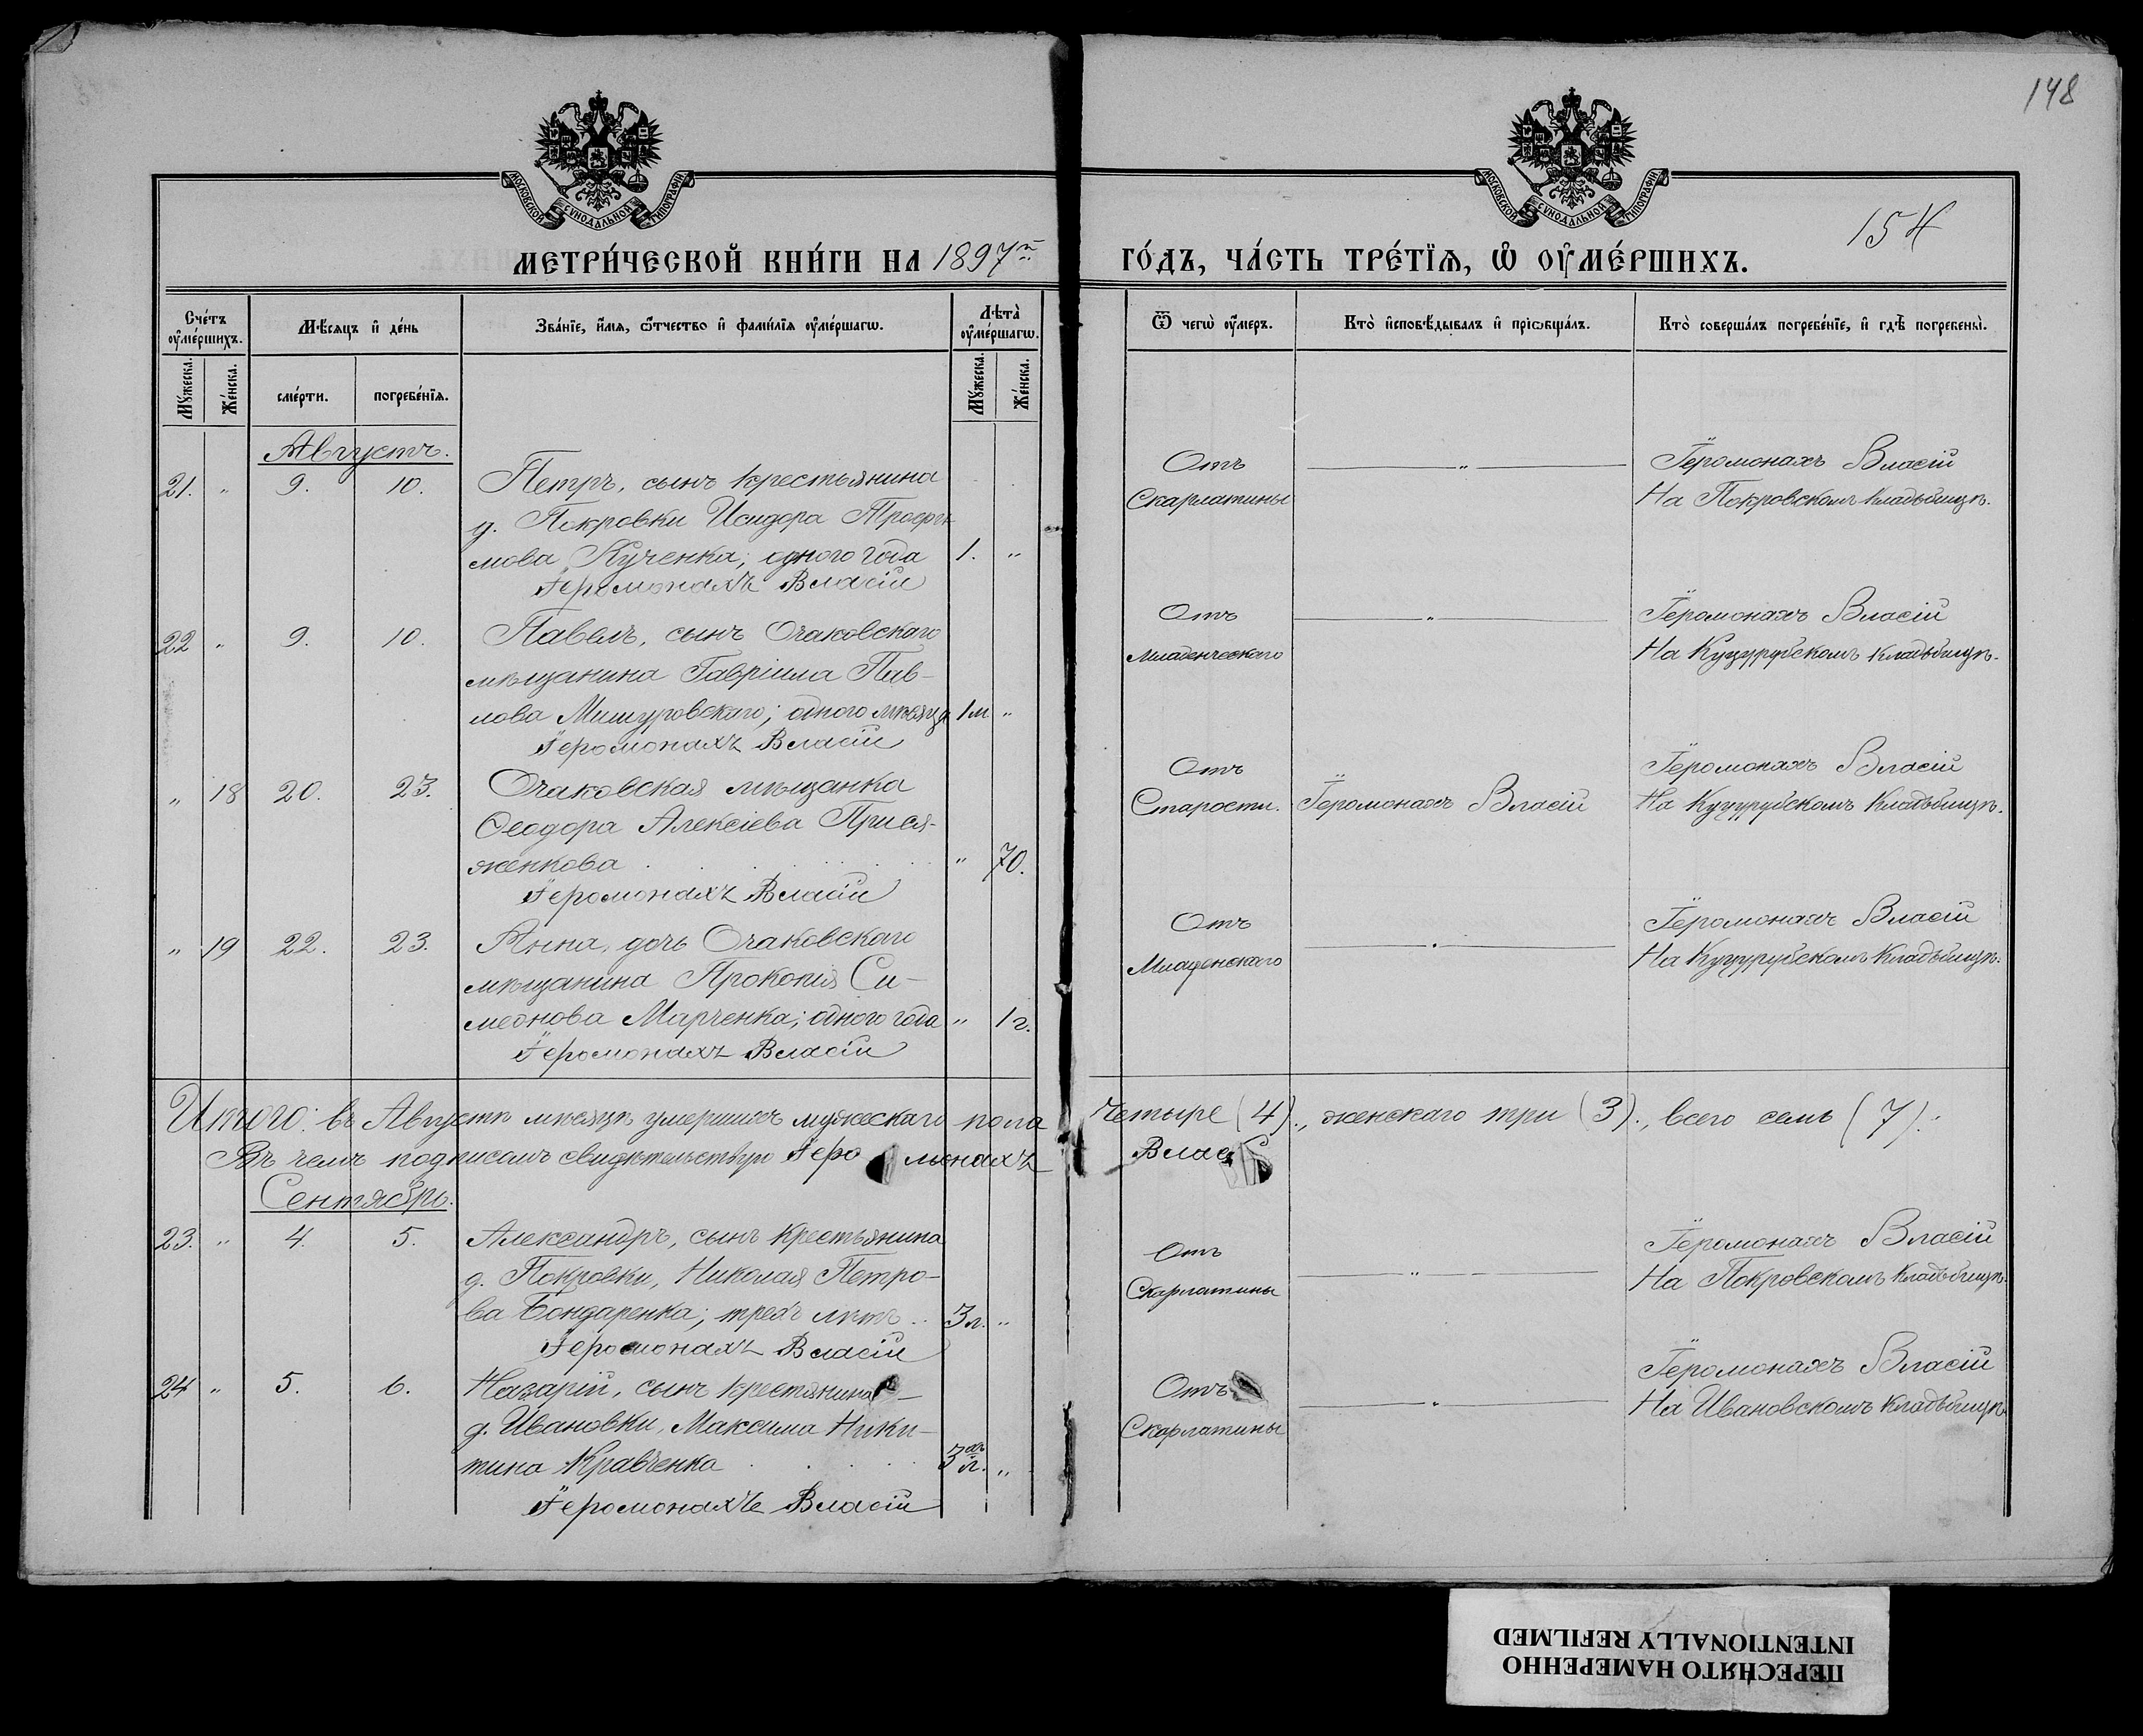 148
МОСКОВСКОЙ СѴНОДАЛЬНОЙ ТИПОГРАФІИ
МОСКОВСКОЙ СѴНОДАЛЬНОЙ ТИПОГРАФІИ
154
МЕТРИ́ЧЕСКОЙ КНИ́ГИ НА 1897й
ГО́ДЪ, ЧА́СТЬ ТРЕ́ТІѦ, Ѡ҆ ОУ҆МЕ́РШИХЪ.
Сче́тъ оу҆ме́ршихъ.
Мѣ́сяцъ и҆ де́нь
Зва́нїе, и҆́мѧ, ѻ҆́тчество и҆ фами́лїѧ оу҆ме́ршагѡ.
Лѣ́та оу҆ме́ршагѡ.
Ѿ чегѡ̀ оу҆́меръ.
Кто̀ и҆сповѣ́дывалъ и҆ прїѡбща́лъ.
Кто̀ соверша́лъ погребе́нїе, и҆ гдѣ̀ погребены̀.
Мꙋ́жеска.
Же́нска.
сме́рти.
погребе́нїѧ.
Мꙋ́жеска.
Же́нска.
Августъ.
21. " 9. 10. Петръ, сынъ крестьянина
д. Покровки Исидора Трофи-
мова Кученка; одного года 1. "
Іеромонахъ Власій
Отъ
Скарлатины
"
Іеромонахъ Власій
На Покровскомъ кладбищѣ.
22 " 9. 10. Павелъ, сынъ Очаковскаго
мѣщанина Гавріила Пав-
лова Мишуровскаго; одного мѣсяца 1м "
Іеромонахъ Власій
Отъ
Младенческаго
"
Іеромонахъ Власій
На Куцурубскомъ кладбищѣ.
" 18 20. 23. Очаковская мѣщанка
Ѳеодора Алексіева Прися-
женкова " 70.
Іеромонахъ Власій
Отъ
Старости.
Іеромонахъ Власій
Іеромонахъ Власій
На Куцурубскомъ кладбищѣ.
" 19 22. 23. Анна, дочь Очаковскаго
мѣщанина Прокопія Си-
меонова Марченка; одного года " 1г.
Іеромонахъ Власій
Отъ
Младенскаго
"
Іеромонахъ Власій
На Куцурубскомъ кладбищѣ.
Итого: въ Августѣ мѣсяцѣ умершихъ мужескаго пола четыре (4)., женскаго три (3)., всего семь (7).
Въ чемъ подписомъ свидѣтельствую Іеромонахъ Влас
Сентябрь.
23. " 4. 5. Александръ, сынъ крестьянина
д. Покровки, Николая Петро-
ва Бондаренка; трехъ лѣтъ .. 3л. "
Іеромонахъ Власій
Отъ
Скарлатины
"
Іеромонахъ Власій
На Покровскомъ кладбищѣ.
24 " 5. 6. Назарій, сынъ крестянина
д. Ивановки, Максима Ники-
тина Кравченка 3хъ л. "
Іеромонахъ Власій
Отъ
Скарлатины
"
Іеромонахъ Власій
На Ивановскомъ кладбищѣ.
ПЕРЕСНЯТО НАМЕРЕННО
INTENTIONALLY REFILMED